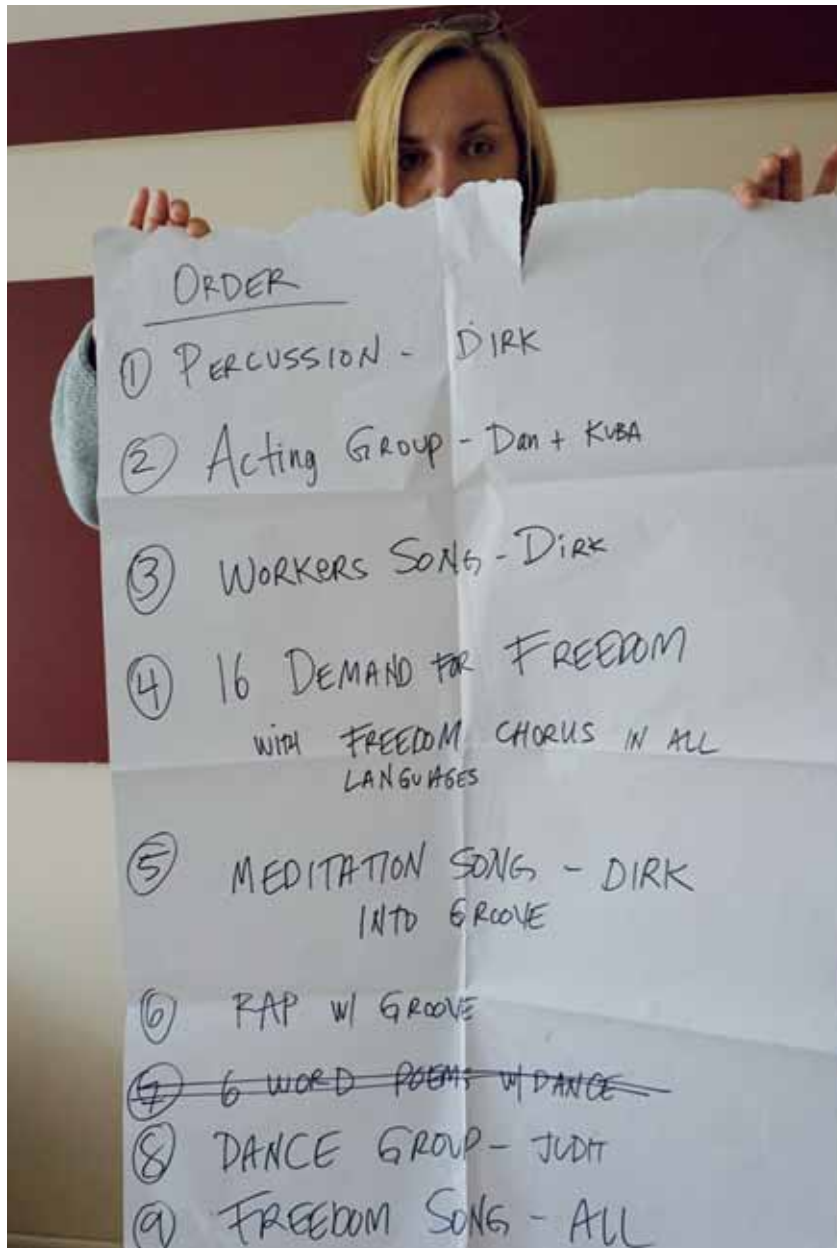 ORDER
① PERCUSSION - DIRK
② Acting GROUP - Dan + KUBA
③ WORKERS SONG - DIRK
④ 16 DEMAND FOR FREEDOM
WITH FREEDOM CHORUS IN ALL
LANGUAGES
⑤ MEDITATION SONG - DIRK
INTO GROOVE
⑥ RAP W/ GROOVE
⑦ 6 WORD POEMS W/ DANCE
⑧ DANCE GROUP - JUDIT
⑨ FREEDOM SONG - ALL